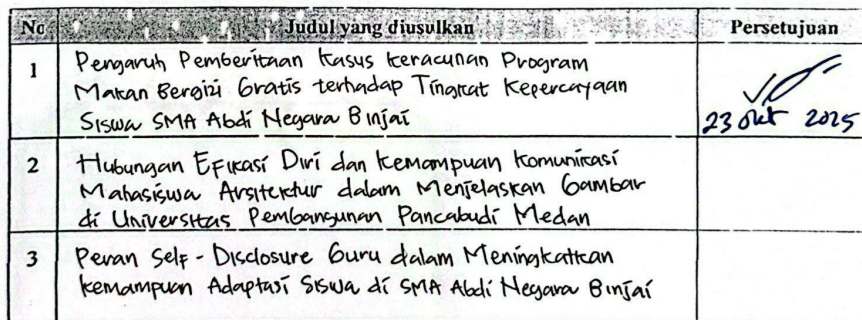 No Judul yang diusulkan Persetujuan
1 Pengaruh Pemberitaan Kasus Keracunan Program
Makan Bergizi Gratis terhadap Tingkat Kepercayaan
Siswa SMA Abdi Negara Binjai
23 Okt 2025
2 Hubungan Efikasi Diri dan Kemampuan Komunikasi
Mahasiswa Arsitektur dalam Menjelaskan Gambar
di Universitas Pembangunan Pancabudi Medan
3 Peran Self-Disclosure Guru dalam Meningkatkan
Kemampuan Adaptasi Siswa di SMA Abdi Negara Binjai